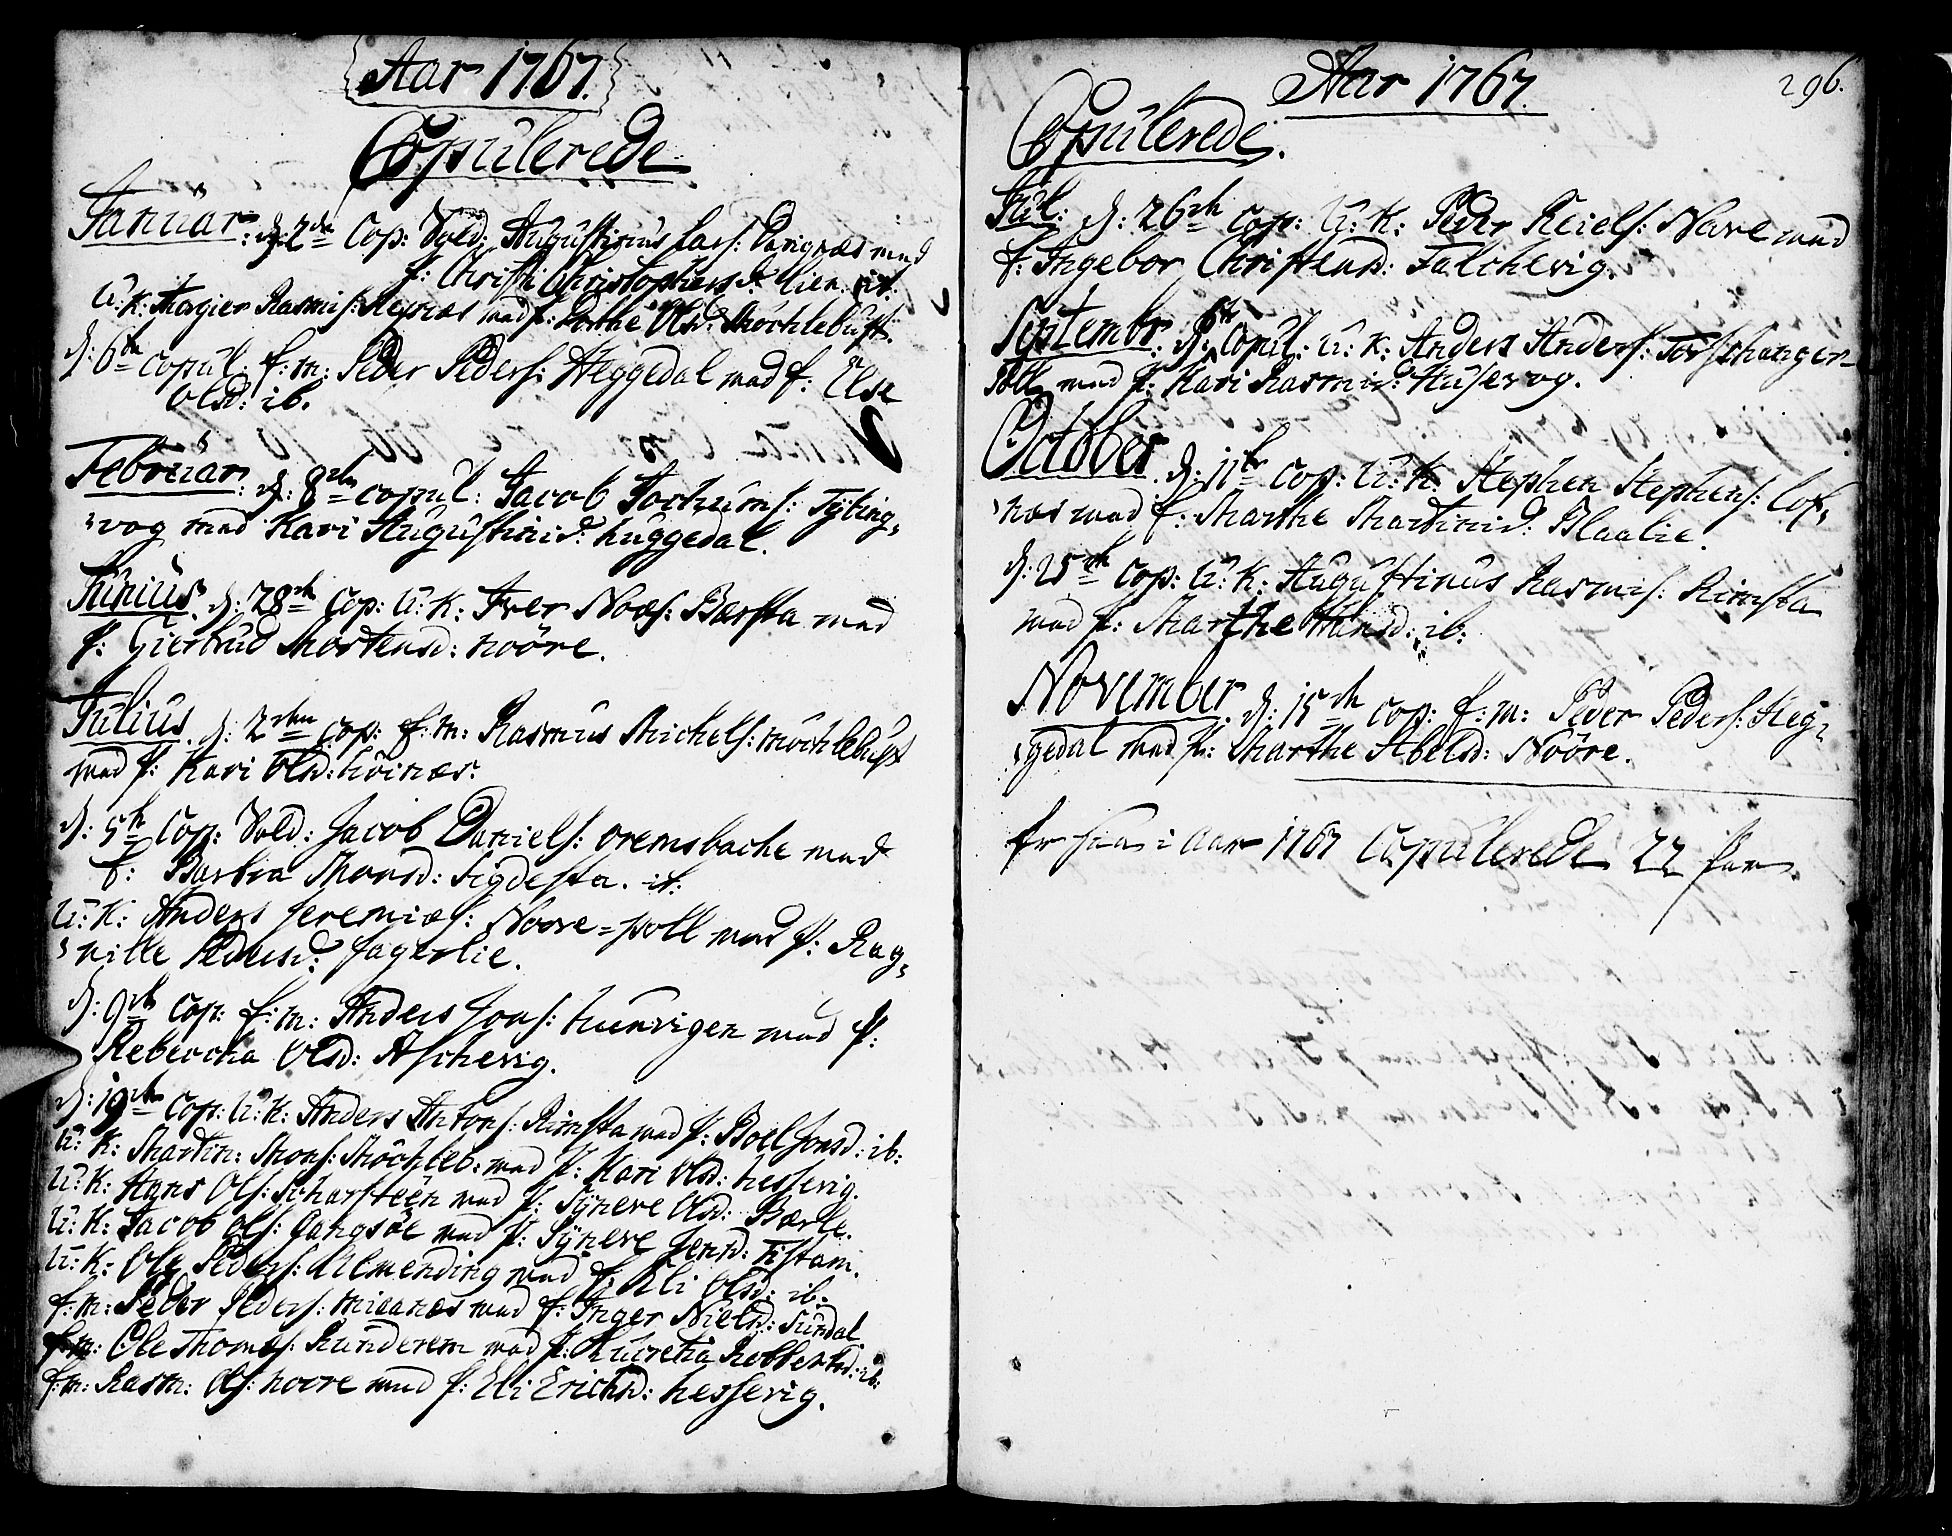 Aar 1767.
Copulerede
Januar: d: 2den Cop: Vold: Augustinus Lars: Vangnæs med
f: Christi Christophersd: Lien. it:
U: K: Rasmus: med f: Dorthe Olsd: Mochlebust.
d: 6te copul: f: m: Peder Peders: Heggedal med f: Else
Olsd: ib.
Februar: d: 8de copul: Jacob Jochums: Tyting,
"vog med Kari Augustinid: huggedal.
Junius. d: 28de Cop: U: K: Iver Noes: Barsta med
f: Giertrud Mortensd: nööre.
Julius. d: 2den Cop: f: m: Rasmus Michels: mochlebust
med f: Kari Olsd: höinæs.
d: 5te Cop: Vold: Jacob Daniels: oremsbache med
f: Barbra Monsd: Sigdesta. it:
U: K: Anders Jeremiæs: Noore=poll med f: Rag,
"nille Pedersd: fagerlie.
d: 9de Cop: f: m: Anders Jons: hunvigen med f:
Rebeccha Olsd: Aschevig.
d: 19de Cop: U: K: Anders Antons: Rimsta med f: Boel Jonsd: ib:
U: K: Martin: Mons: Möchleb: med f: Kari Olsd: hessevig.
U: K: Hans Ols: Scharsteen med f: Synneve Olsd: Barle.
U: K: Jacob Ols: Gangsöe med f: Synneve Jensd: Tistam.
U: K: Ole Peders: Almending med f: Eli Olsd: ib:
f: m: Peder Peders: med f: Inger Nielsd: Sundal
f: m: Ole Thomæs: Runderem med f: Lucretia Robbertsd: ib:
f: m: Rasm: Ols: noore med f: Eli Erichsd: hessevig.
Aar 1767.
296.
Copulerede.
Jul: d: 26de Cop: U: K: Peder Reiels: Nave med
f: Ingebor Christensd: Falchevig.
Septembr: d: 6te Copul: U: K: Anders Anders: Torschanger-
Poll med f: Kari Rasmisd: Husevog.
October d: 11te Cop: U: K: Stephen Stephens: Cop,
"nes med f: Marthe Martinid: Blaalie.
d: 25de Cop: U: K: Augustinus Rasmis: Rimsta
med f: Marthe Hansd: ib:
November. d: 15de Cop: f: m: Peder Peders: Heg,
"gedal med f: Marthe Abelsd: Nööre.
Er saa i Aar 1767 Copulerede 22 Par.